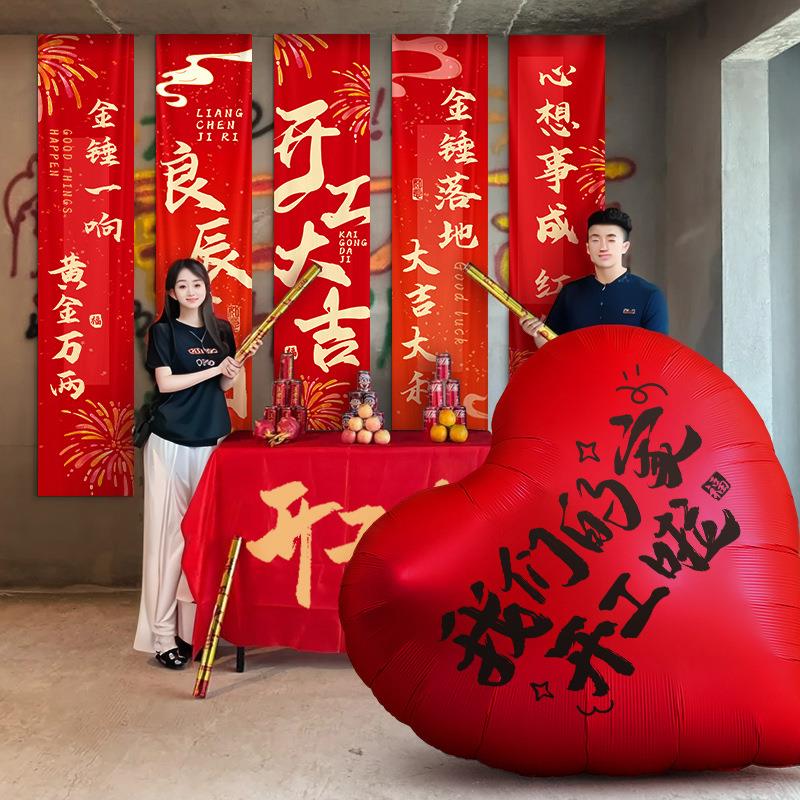 金锤一响
黄金万两
GOOD THINGS
HAPPEN
LIANG
CHEN
JI RI
良辰
开工大吉
KAI
GONG
DA
JI
金锤落地
大吉大利
Good luck
心想事成
红
福
福
开工
我们的家
开工啦
福